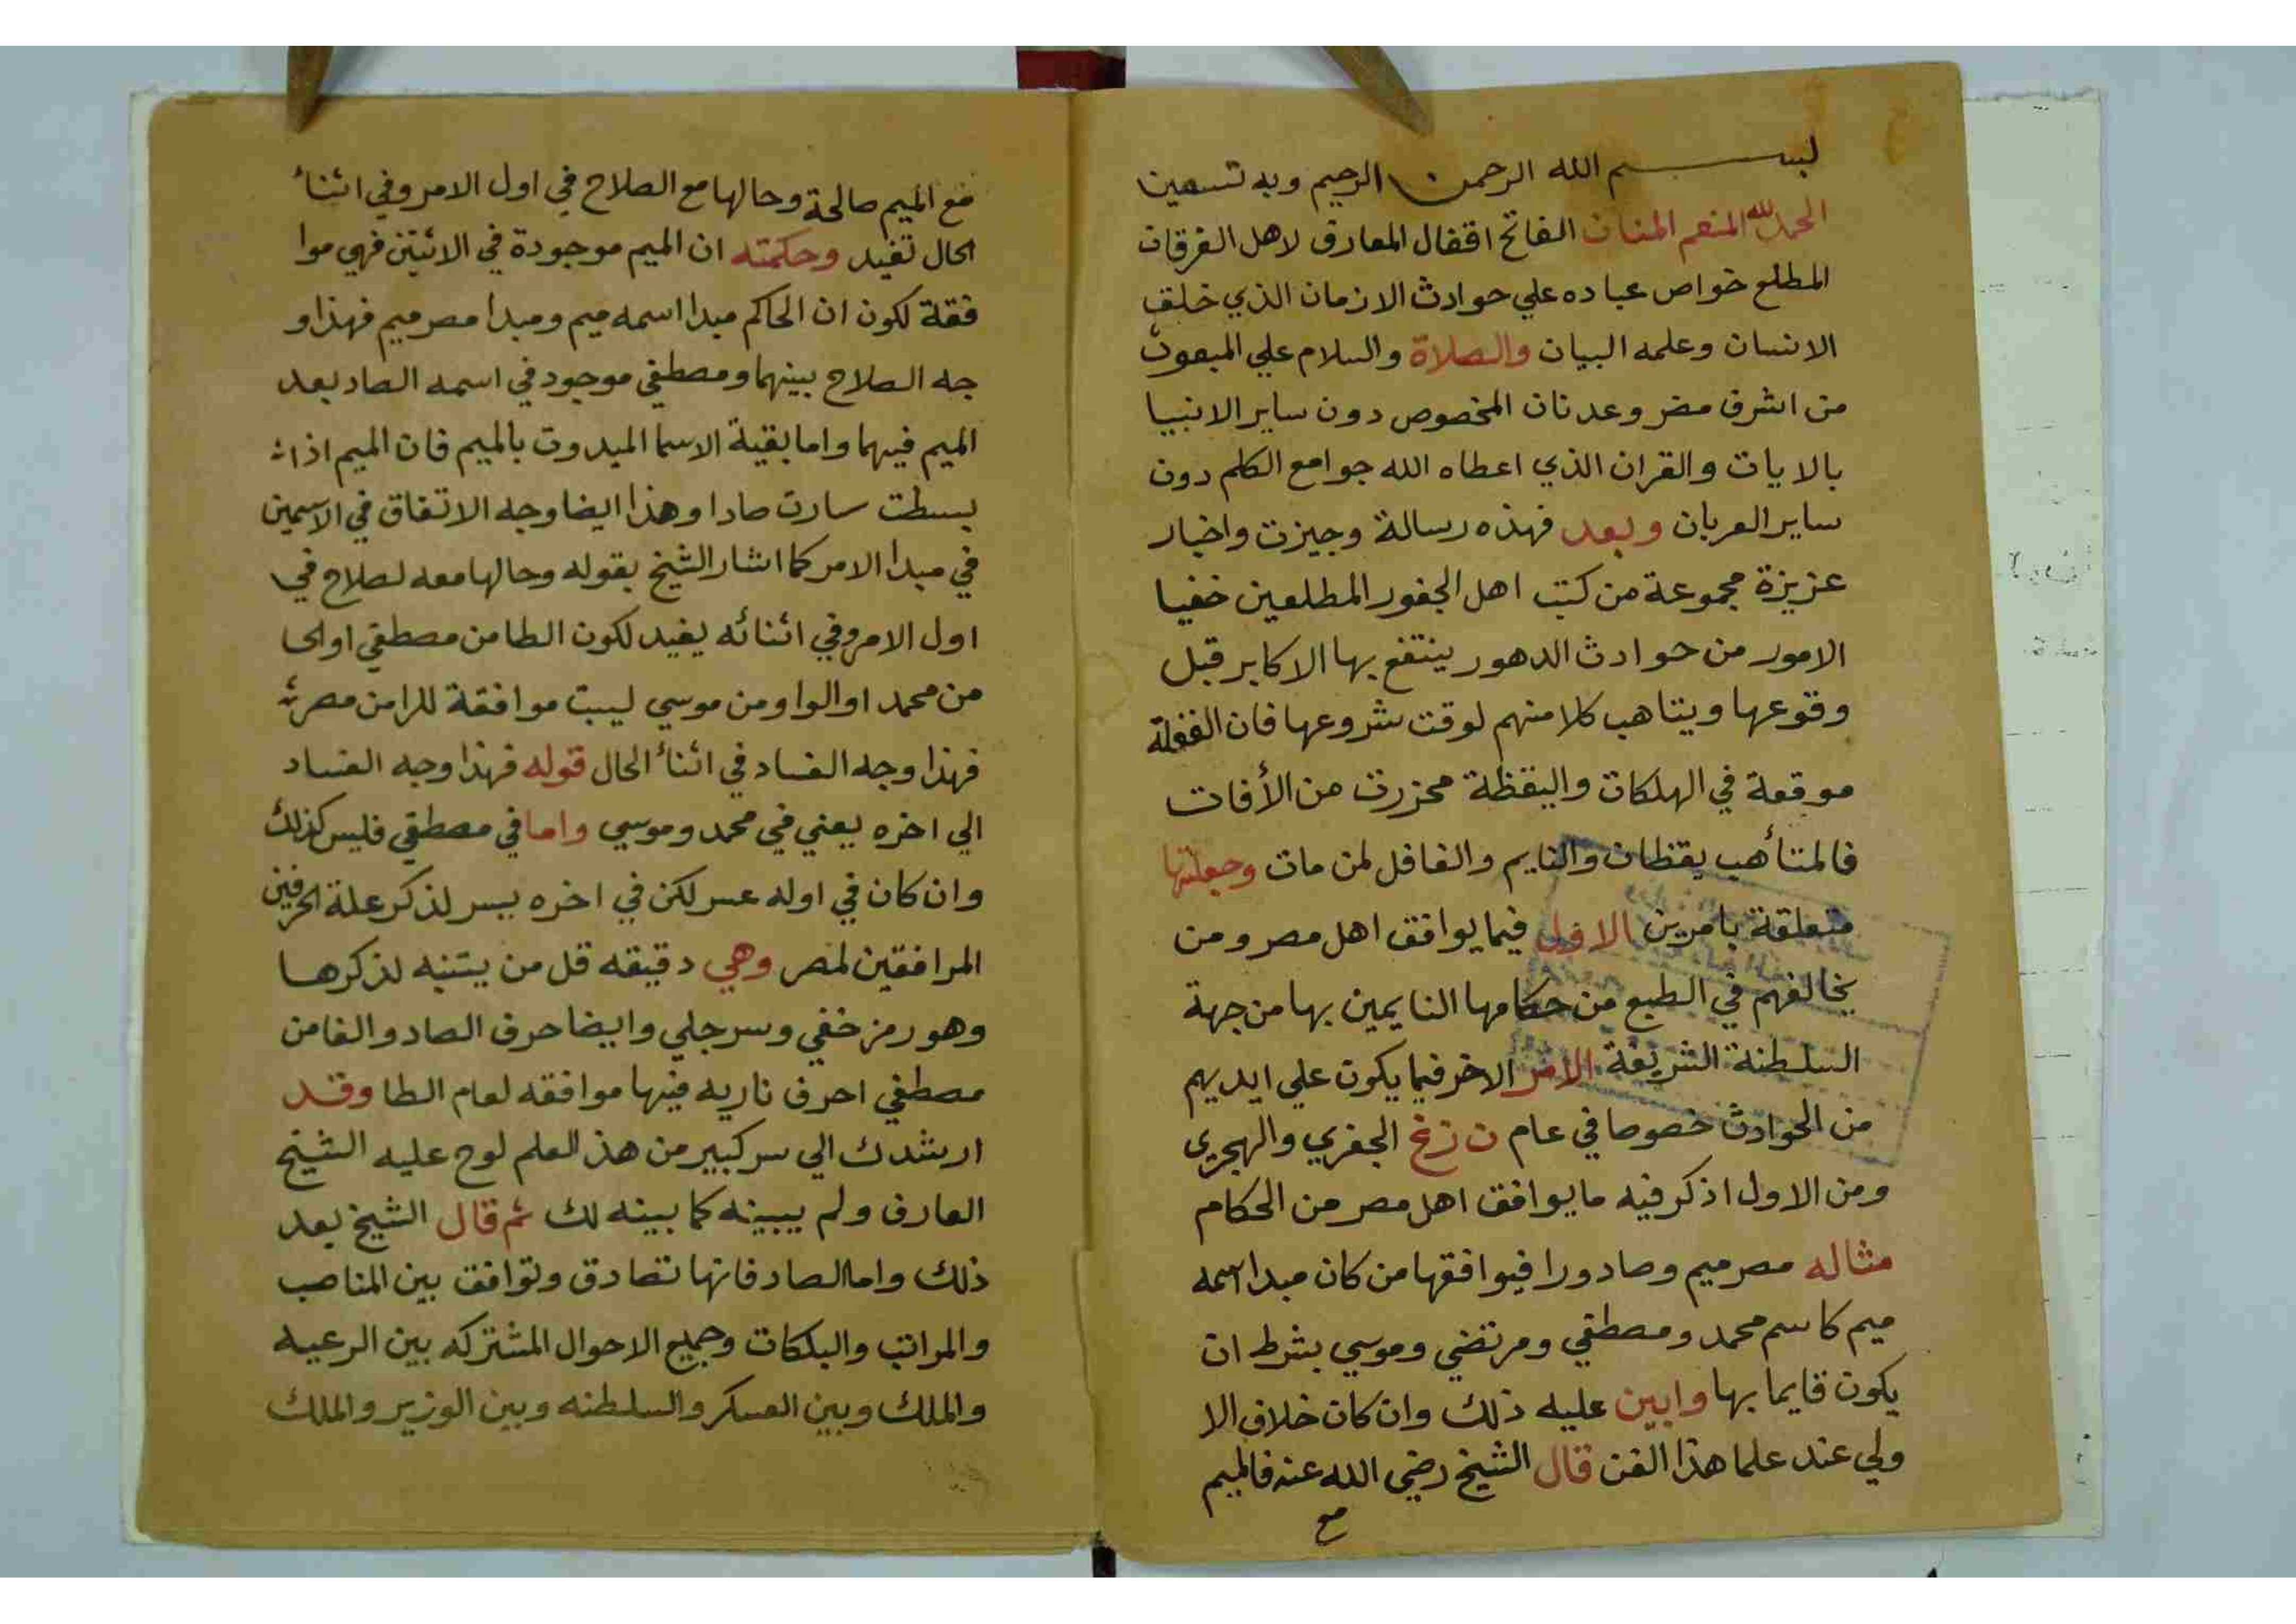 بسم الله الرحمن الرحيم وبه نستعين
الحمد لله المنعم المنان الفاتح اقفال المعارف لاهل الفرقان
المطلع خواص عباده علي حوادث الازمان الذي خلق
الانسان وعلمه البيان والصلاة والسلام علي المبعوث
من اشرف مضر وعدنان المخصوص دون ساير الانبيا
بالايات والقران الذي اعطاه الله جوامع الكلم دون
ساير العربان وبعد فهذه رسالة وجيزت واخبار
عزيزة مجموعة من كتب اهل الجفور المطلعين خفيا
الامور من حوادث الدهور ينتفع بها الاكابر قبل
وقوعها ويتاهب كلا منهم لوقت شروعها فان الغفلة
موقعة في الهلكات واليقظة محزرت من الأفات
فالمتأهب يقظان والنايم والغافل لمن مات وجعلتها
متعلقة بامرين الاول فيما يوافق اهل مصر ومن
يخالفهم في الطبع من حكامها النايمين بها من جهة
السلطنة الشريفة الامر الاخر فيما يكون علي ايديهم
من الحوادث خصوصا في عام ن زغ الجفري والهجري
ومن الاول اذكر فيه ما يوافق اهل مصر من الحكام
مثاله مصر ميم وصاد ورا فيوافقها من كان مبدا اسمه
ميم كاسم محمد ومصطفي ومرتضي وموسي بشرط ان
يكون قايما بها وابين عليه ذلك وان كان خلاف الا
ولي عند علما هذا الفن قال الشيخ رضي الله عنه فالميم
مع
مع الميم صالحة وحالها مع الصلاح في اول الامر وفي اثناء
الحال تفيد وحكمته ان الميم موجودة في الاثنين فهي موا
فقة لكون ان الحاكم مبدا اسمه ميم ومبدا مصر ميم فهذا و
جه الصلاح بينهما ومصطفي موجود في اسمه الصاد بعد
الميم فيهما واما بقية الاسما المبدوت بالميم فان الميم اذا
بسطت سارت صادا وهذا ايضا وجه الاتفاق في الاسمين
في مبدا الامر كما اشار الشيخ بقوله وحالها معه لصلاح في
اول الامر وفي اثنائه يفيد لكون الطا من مصطفي اوالحا
من محمد او الواو من موسي ليست موافقة للرا من مصر
فهذا وجه الفساد في اثناء الحال قوله فهذا وجه الفساد
الي اخره يعني في محمد وموسي واما في مصطفي فليس كذلك
وان كان في اوله عسر لكن في اخره يسر لذكر علة الحرفين
المرافقين لمصر وهي دقيقه قل من يتنبه لذكرها
وهو رمز خفي وسر جلي وايضا حرف الصاد والفا من
مصطفي احرف ناريه فيها موافقه لعام الطا وقد
ارشدك الي سر كبير من هذ العلم لوح عليه الشيخ
العارف ولم يبينه كما بينه لك ثم قال الشيخ بعد
ذلك واما الصاد فانها تصادق وتوافق بين المناصب
والمراتب والبلكات وجميع الاحوال المشتركه بين الرعيه
والملك وبين العسكر والسلطنه وبين الوزير والملك